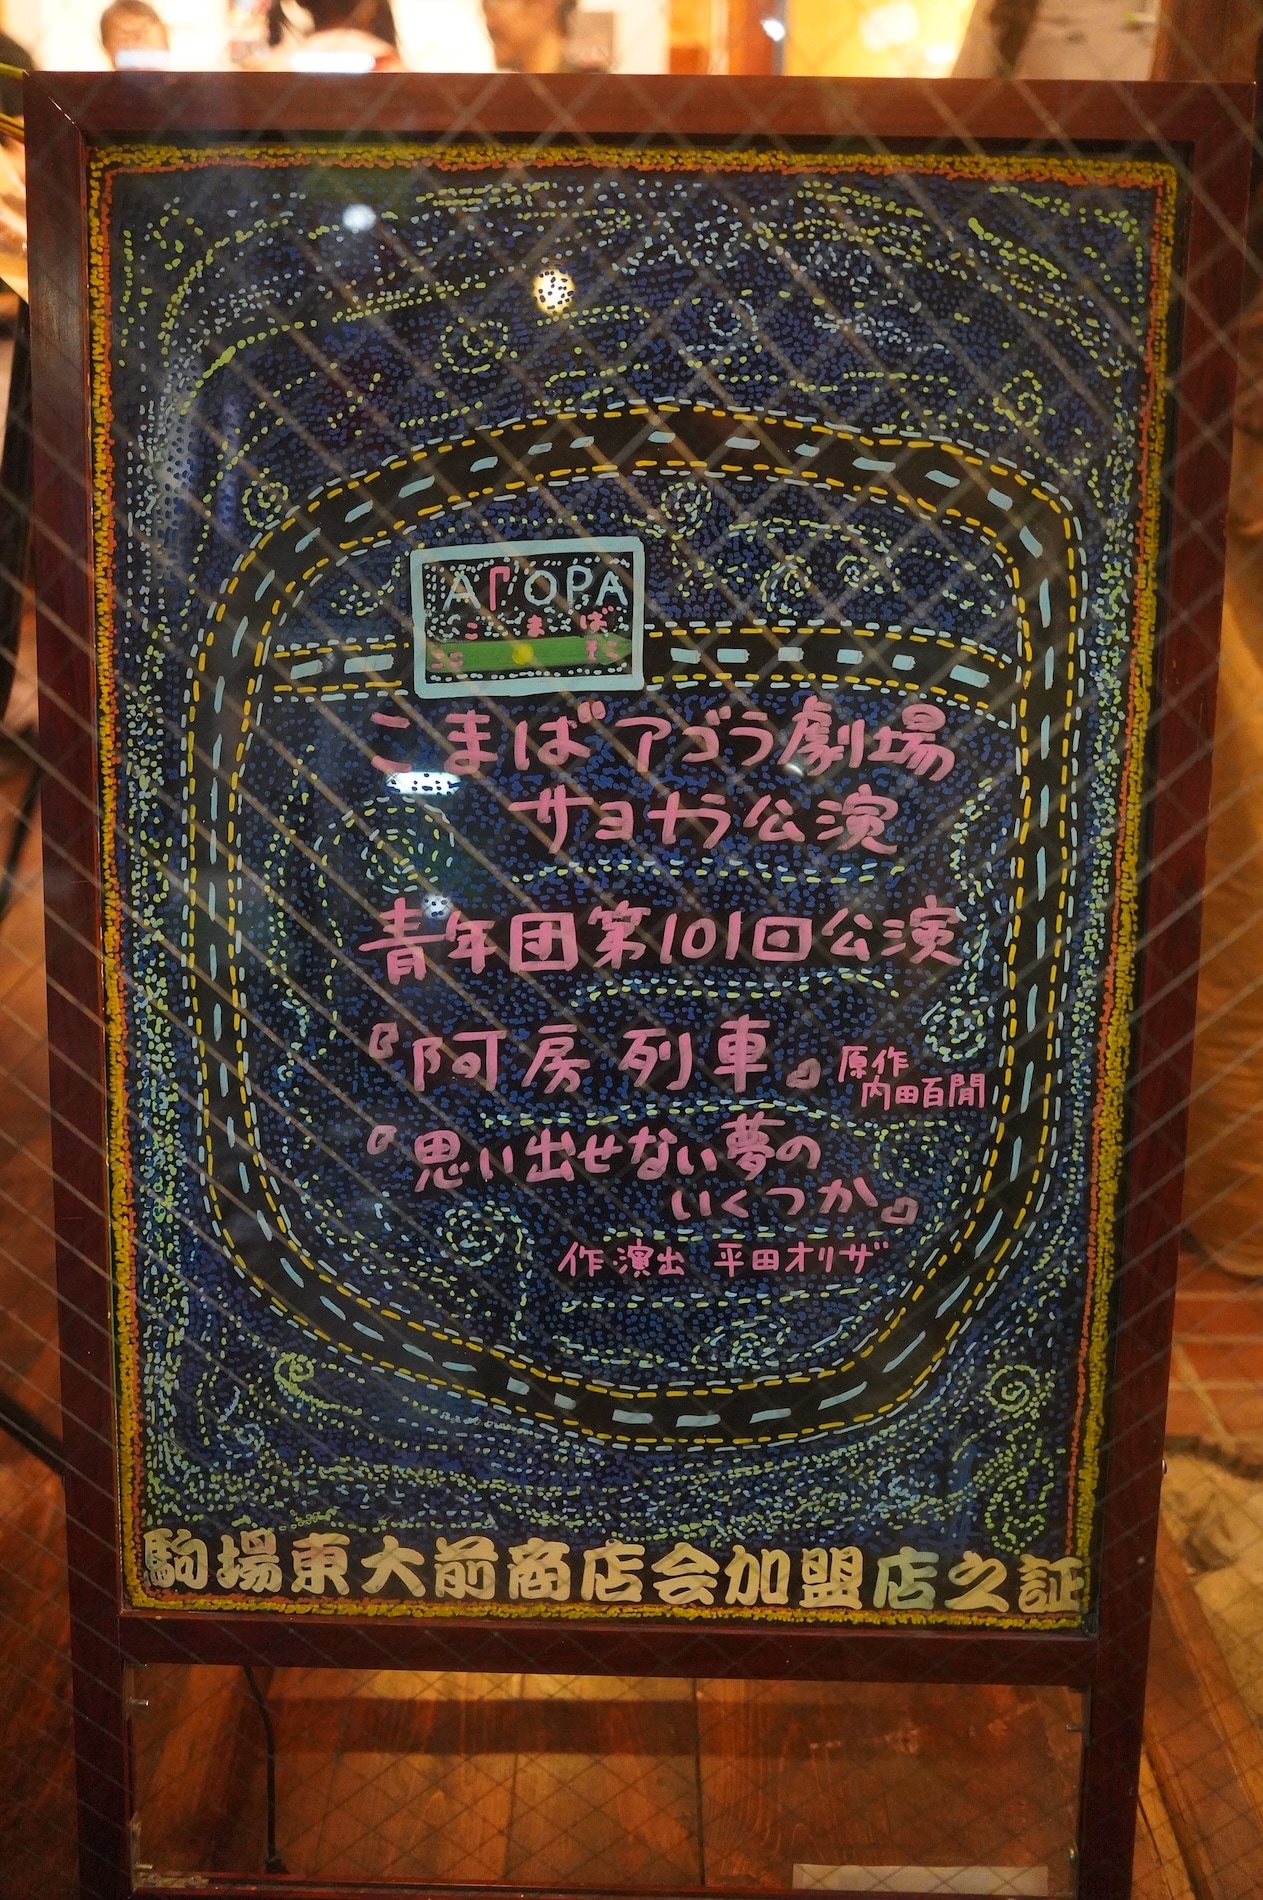 ΑΓΟΡΑ
こまば
こまばアゴラ劇場
サヨナラ公演
青年団第101回公演
『阿房列車』
原作
内田百閒
『思い出せない夢の
いくつか』
作・演出 平田オリザ
駒場東大前商店会加盟店之証